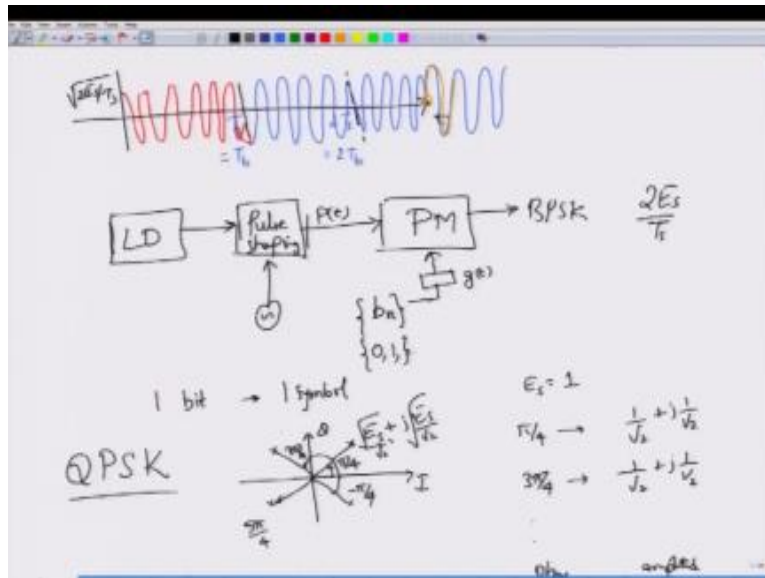 √2Es/Ts
= Tb
= 2Tb
LD
Pulse shaping
p(t)
PM
BPSK
2Es
Ts
g(t)
{bn}
{0,1,}
1 bit → 1 symbol
Es = 1
QPSK
Q
I
π/4
-π/4
5π/4
π/4 → 1/√2 + j 1/√2
3π/4 → -1/√2 + j 1/√2